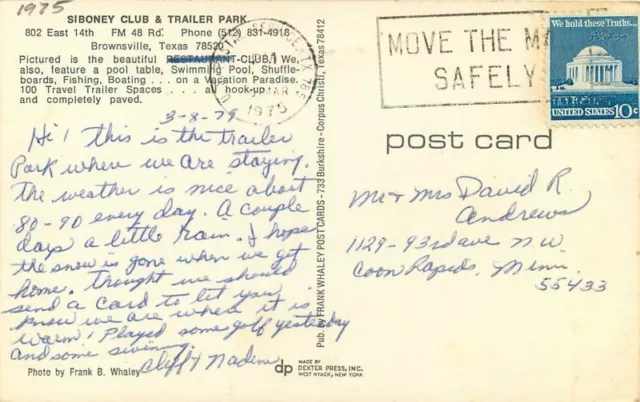 1975
SIBONEY CLUB & TRAILER PARK
802 East 14th FM 48 Rd. Phone (512) 831-4918
Brownsville, Texas 78520
Pictured is the beautiful RESTAURANT-CLUB! We,
also, feature a pool table, Swimming Pool, Shuffle-
boards, Fishing, Boating . . . on a Vacation Paradise.
100 Travel Trailer Spaces . . . all hook-up
and completely paved.
3-8-79
Hi! this is the trailer
Park where we are staying.
the weather is nice about
80-90 every day. A couple
days a little rain. I hope
the snow is gone when we get
home. thought we should
send a card to let you
know we are where it is
warm! Played some golf yesterday
and some swimming.
Cliff & Nadene
Photo by Frank B. Whaley
Pub. by FRANK WHALEY POST CARDS - 733 Burkshire - Corpus Christi, Texas 78412
dp
MADE BY
DEXTER PRESS, INC.
WEST NYACK, NEW YORK
MAR
1975
MOVE THE MA
SAFELY
We hold these Truths...
UNITED STATES 10c
post card
Mr & Mrs David R.
Andrews
1129-93rd ave N.W.
Coon Rapids, Minn.
55433